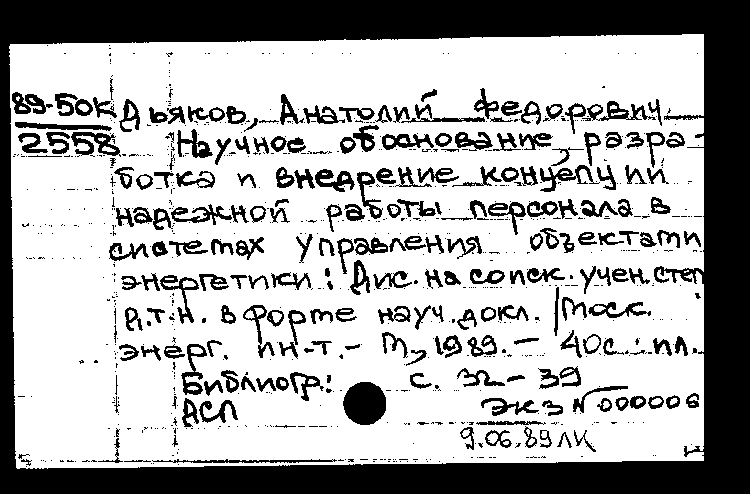 89-50к Дьяков, Анатолий Федорович
2558 Научное обоснование, разра-
ботка и внедрение концепции
надежной работы персонала в
системах управления объектами
энергетики: Дис. на соиск. учен. степ
д.т.н. в форме науч. докл. / Моск.
энерг. ин-т. - М., 1989. - 40с.: ил.
Библиогр.: с. 32-39
АСП ЭКЗ N 000006
9.06.89 ЛК